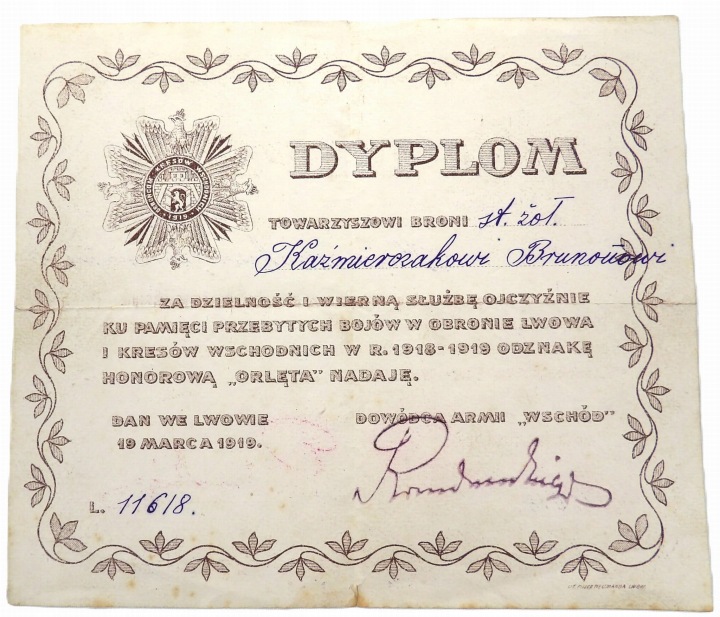 DYPLOM
TOWARZYSZOWI BRONI st. żoł.
Kaźmierczakowi Brunonowi
ZA DZIELNOŚĆ I WIERNĄ SŁUŻBĘ OJCZYŹNIE
KU PAMIĘCI PRZEBYTYCH BOJÓW W OBRONIE LWOWA
I KRESÓW WSCHODNICH W R. 1918-1919 ODZNAKĘ
HONOROWĄ „ORLĘTA” NADAJĘ.
DAN WE LWOWIE
19 MARCA 1919.
DOWÓDCA ARMII „WSCHÓD”
L. 11618.